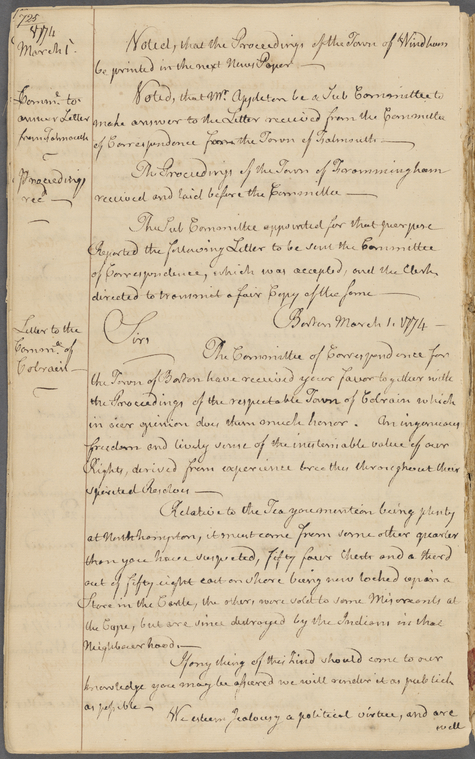 725
1774
March 1.
Voted, that the Proceedings of the Town of Windham
be printed in the next News Paper —
Comme. to
answer Letter
from Falmouth
Voted, that Mr. Appleton be a Sub Committee to
make answer to the Letter received from the Committee
of Correspondence from the Town of Falmouth —
Proceedings
recd. —
The Proceedings of the Town of Frammingham
received and laid before the Committee —
The Sub Committee appointed for that purpose
Reported the following Letter to be sent the Committee
of Correspondence, which was accepted, and the Clerk
directed to transmit a fair Copy of the same —
Letter to the
Comme. of
Colrain —
Boston March 1. 1774 —
Sirs
The Committee of Correspondence for
the Town of Boston have received your favor together with
the Proceedings of the respectable Town of Colrain which
in our opinion does them much honor. An ingenuous
freedom and lively sense of the inestimable value of our
Rights, derived from experience breathes throughout their
spirited Resolves —
Relative to the Tea you mention being plenty
at Northampton, it must come from some other quarter
than you have suspected, fifty four Chests and a third
out of fifty eight cast on shore being now locked up in a
Store in the Castle, the others were sold to some Miscreants at
the Cape, but are since destroyed by the Indians in that
Neighbourhood. —
If any thing of this kind should come to our
knowledge you may be assured we will render it as publick
as possible —
We esteem Jealousy a political virtue, and are
well